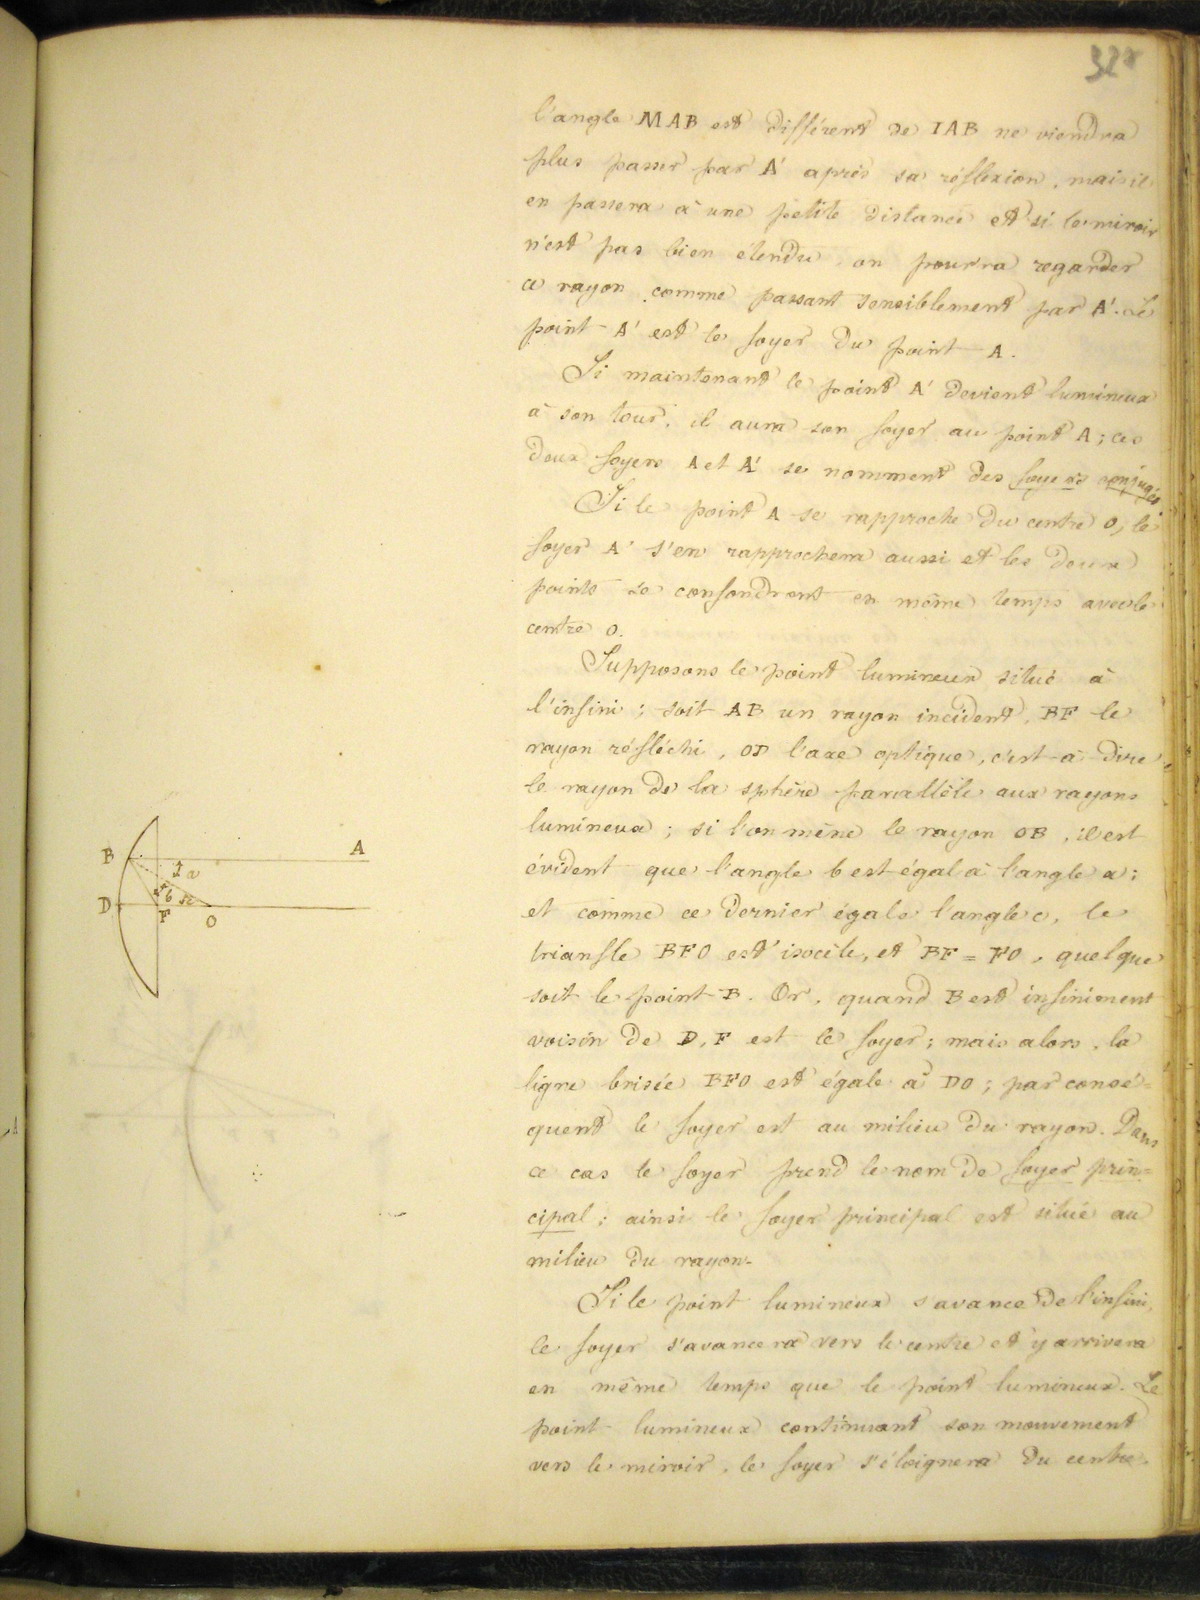 l'angle MAB est différent de IAB ne viendra
plus passer par A' après sa réflexion, mais il
en passera à une petite distance et si le miroir
n'est pas bien étendu, on pourra regarder
ce rayon comme passant sensiblement par A'. Le
point A' est le foyer du point A.
Si maintenant le point A' devient lumineux
à son tour, il aura son foyer au point A; ces
deux foyers A et A' se nomment des foyers conjugés.
Si le point A se rapproche du centre O, le
foyer A' s'en rapprochera aussi et les deux
points se confondront en même temps avec le
centre O.
Supposons le point lumineux situé à
l'infini; soit AB un rayon incident, BF le
rayon réfléchi, OD l'axe optique, c'est-à-dire
le rayon de la sphère parallèle aux rayons
lumineux; si l'on mène le rayon OB, il est
évident que l'angle b est égal à l'angle a;
et comme ce dernier égale l'angle c, le
triangle BFO est isocèle, et BF = FO, quelque
soit le point B. Or, quand B est infiniment
voisin de D, F est le foyer; mais alors, la
ligne brisée BFO est égale à DO; par consé=
quent le foyer est au milieu du rayon. Dans
ce cas le foyer prend le nom de foyer prin=
cipal; ainsi le foyer principal est situé au
milieu du rayon.
Si le point lumineux s'avance de l'infini,
le foyer s'avancera vers le centre et y arrivera
en même temps que le point lumineux. Le
point lumineux continuant son mouvement
vers le miroir, le foyer s'éloignera du centre.
B A
a
b c
D F O